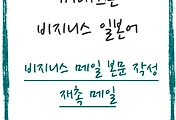 비지니스 일본어
비지니스 메일 본문 작성
재촉 메일